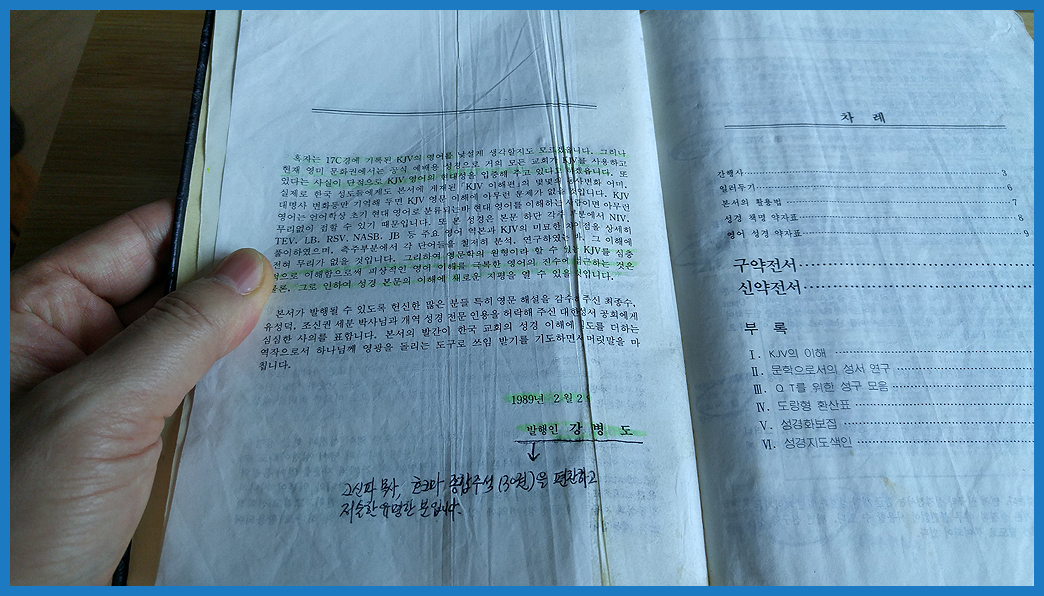 혹자는 17C경에 기록된 KJV의 영어를 낯설게 생각할지도 모르겠습니다. 그러나
현재 영미 문화권에서는 공식 예배용 성경으로 거의 모든 교회가 KJV를 사용하고
있다는 사실이 단적으로 KJV 영어의 현대성을 입증해 주고 있다고 하겠습니다. 또
실제로 한국 성도들에게도 본서에 게재된 「KJV 이해편」의 몇몇의 동사변화 어미,
대명사 변화등만 기억해 두면 KJV 영문 이해에 아무런 문제가 없을 것입니다. KJV
영어는 언어학상 초기 현대 영어로 분류되는바 현대 영어를 이해하는 사람이면 아무런
무리없이 접할 수 있기 때문입니다. 또 본 성경은 본문 하단 각주 부분에서 NIV,
TEV, LB, RSV, NASB, JB 등 주요 영어 역본과 KJV의 미묘한 차이점을 상세히
풀이하였으며, 측주부분에서 각 단어들을 철저히 분석, 연구하였는 바, 그 이해에
전혀 무리가 없을 것입니다. 그리하여 영문학의 원형이라 할 수 있는 KJV를 심층
적으로 이해함으로써 피상적인 영어 이해를 극복한 영어의 진수에 접근하는 것은
물론, 그로 인하여 성경 본문의 이해에 새로운 지평을 열 수 있을 것입니다.
본서가 발행될 수 있도록 헌신한 많은 분들 특히 영문 해설을 감수해주신 최종수,
유성덕, 조신권 세분 박사님과 개역 성경 전문 인용을 허락해 주신 대한성서 공회에게
심심한 사의를 표합니다. 본서의 발간이 한국 교회의 성경 이해에 심도를 더하는
역작으로서 하나님께 영광을 돌리는 도구로 쓰임 받기를 기도하면서 머릿말을 마
칩니다.
1989년 2월 2
발행인 강 병 도
고신파 목사, 호크마 종합주석 (30권)을 편찬하고
저술한 유명한 분입니다.
차 례
간행사 3
일러두기 6
본서의 활용법 7
성경 책명 약자표 8
영어 성경 약자표 9
구약전서
신약전서
부 록
Ⅰ. KJV의 이해
Ⅱ. 문학으로서의 성서 연구
Ⅲ. QT를 위한 성구 모음
Ⅳ. 도량형 환산표
Ⅴ. 성경화보집
Ⅵ. 성경지도색인